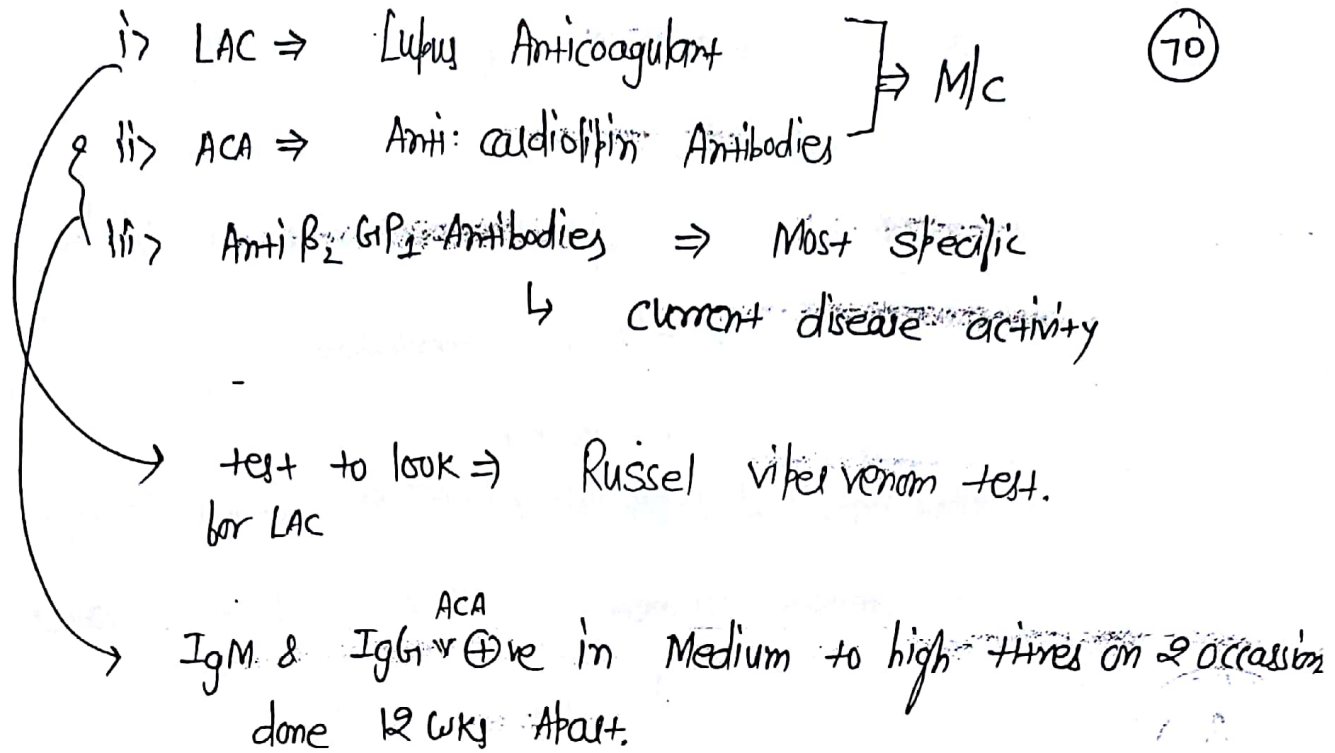 i> LAC ⇒ Lupus Anticoagulant
⇒ M/C
70
ii> ACA ⇒ Anti: cardiolipin Antibodies
iii> Anti β₂ GP₁ Antibodies ⇒ Most specific
↳ current disease activity
-
test to look ⇒ Russel viper venom test.
for LAC
ACA
IgM & IgG ⊕ve in Medium to high titres on 2 occassion
done 12 wks Apart.